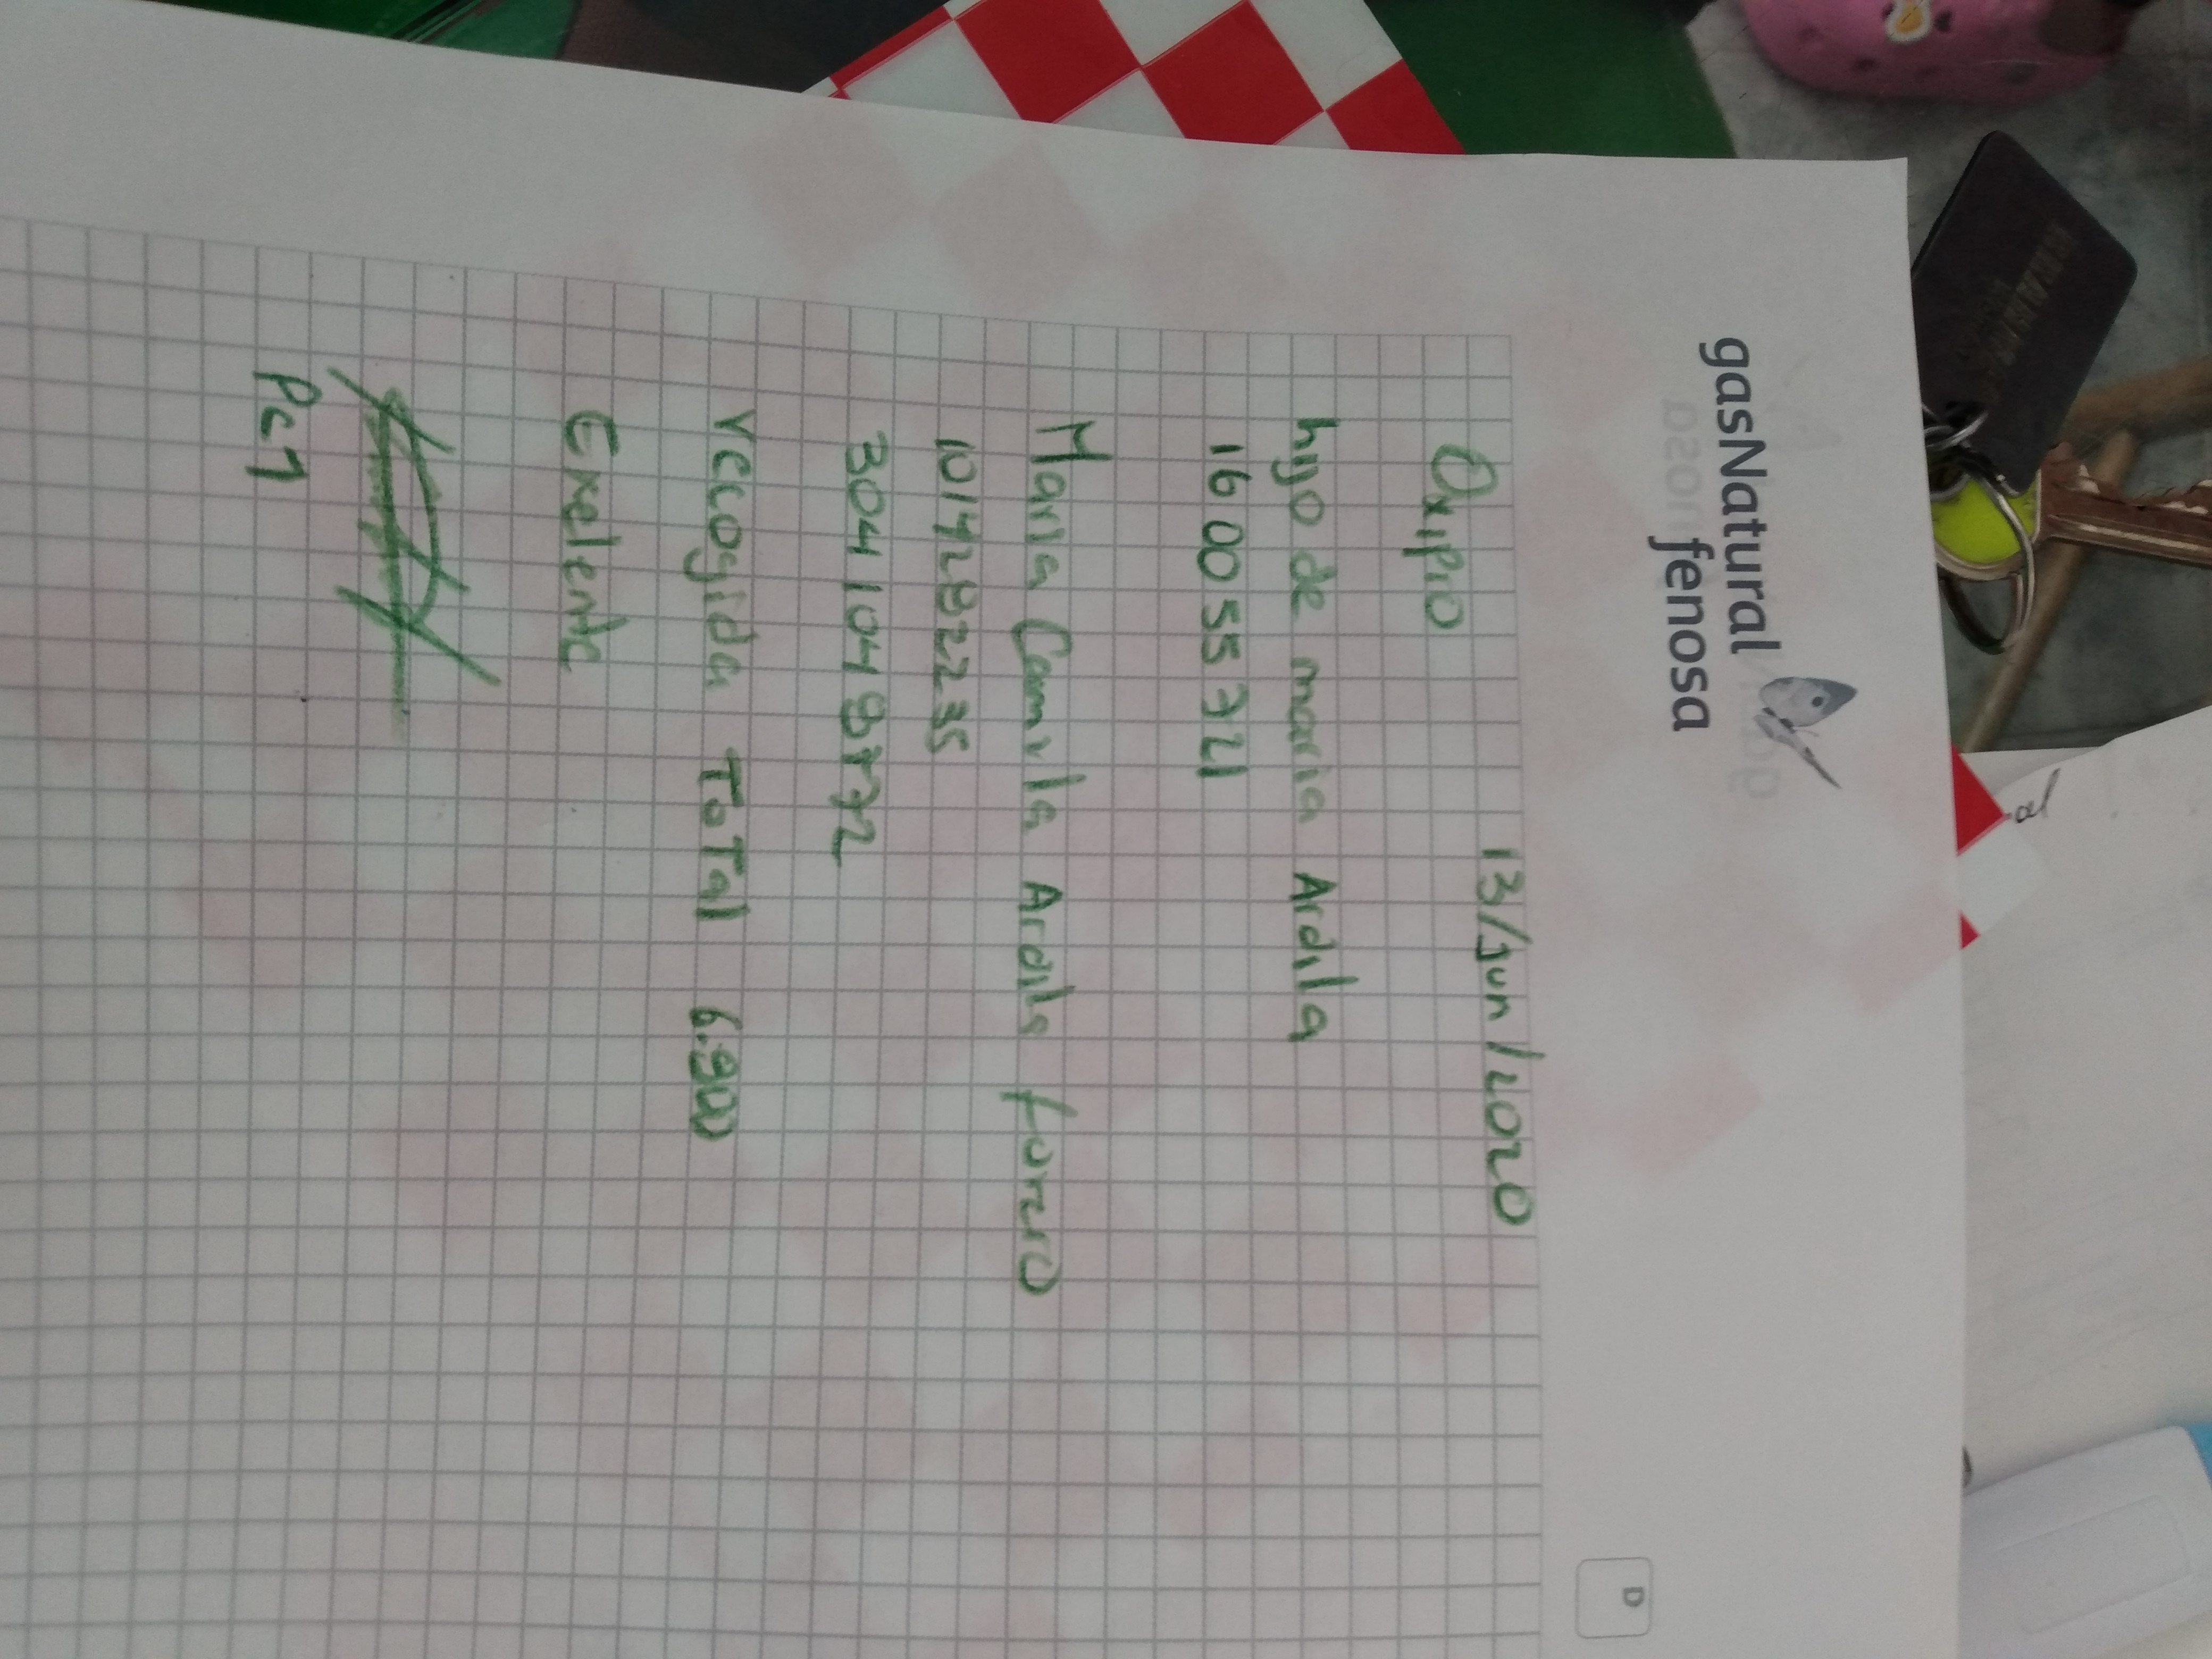 gasNatural
fenosa
13/Jun/2020
Oxipro
hijo de maria Ardila
1600 55 721
Maria Camila Ardila forero
10142982235
304 104 98772
recogida ToTal 6.900
Exelente
Pc1
al
D